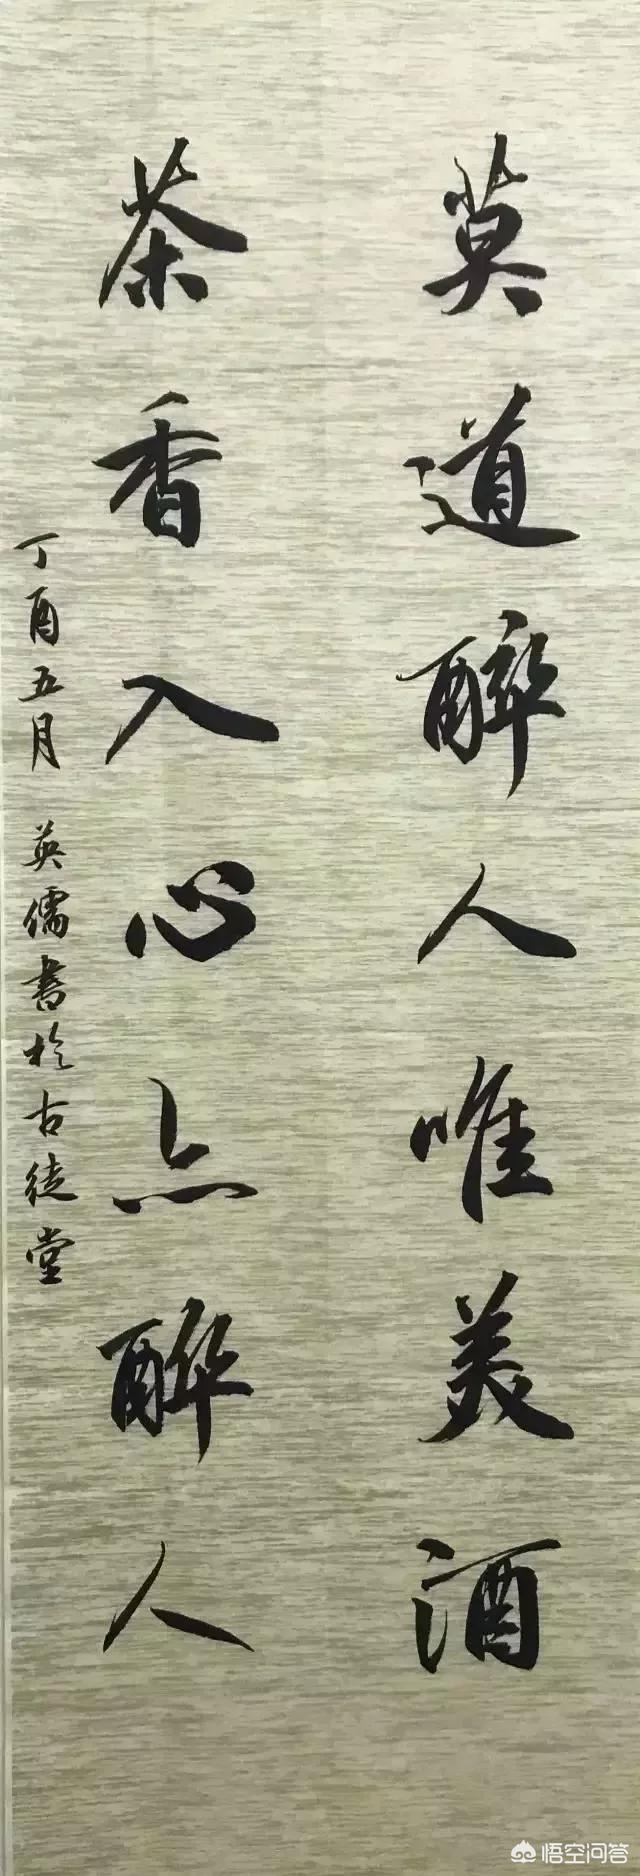 莫道醉人唯美酒
茶香入心亦醉人
丁酉五月 英儒書於古徒堂
悟空问答